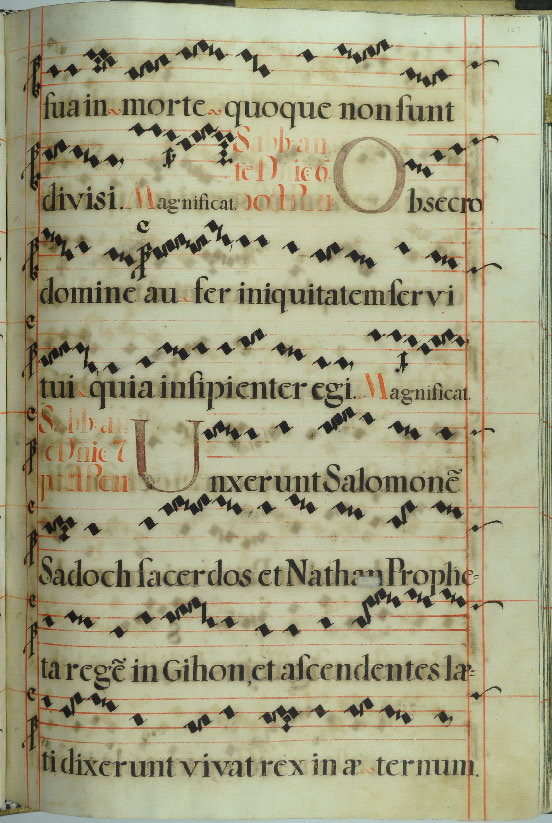 sua in morte quoque non sunt
divisi. Magnificat. Obsecro
domine aufer iniquitatem servi
tui quia insipienter egi. Magnificat.
Unxerunt Salomonē
Sadoch sacerdos et Nathan Prophe-
ta regē in Gihon, et ascendentes læ-
ti dixerunt vivat rex in æternum.